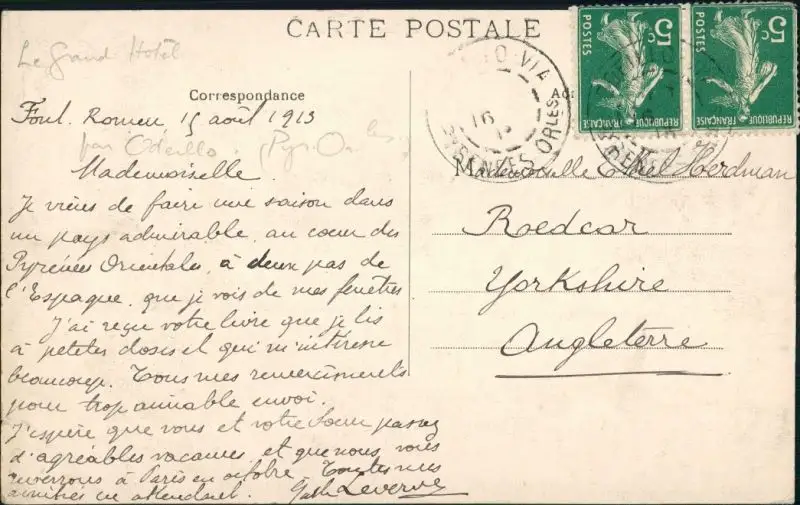 CARTE POSTALE
Le Grand Hotel
Correspondance
Font. Romeu 15 août 1913
par Odeillo. (Pyr. Or
Mademoiselle.
Je viens de faire une saison dans
un pays admirable, au cœur des
Pyrénées Orientales, à deux pas de
l'Espagne, que je vois de mes fenêtres
J'ai reçu votre livre que je lis
à petites doses et qui m'intéresse
beaucoup. Tous mes remerciements
pour trop aimable envoi.
J'espère que vous et votre sœur passez
d'agréables vacances, et que nous vous
reverrons à Paris en octobre. Toutes mes
amitiés en attendant. Leverve
5c
POSTES
REPUBLIQUE FRANÇAISE
5c
POSTES
REPUBLIQUE FRANÇAISE
VIA
16
PYRENEES ORLES
Ad
Mademoiselle Ethel Herdman
Roedcar
Yorkshire
Angleterre